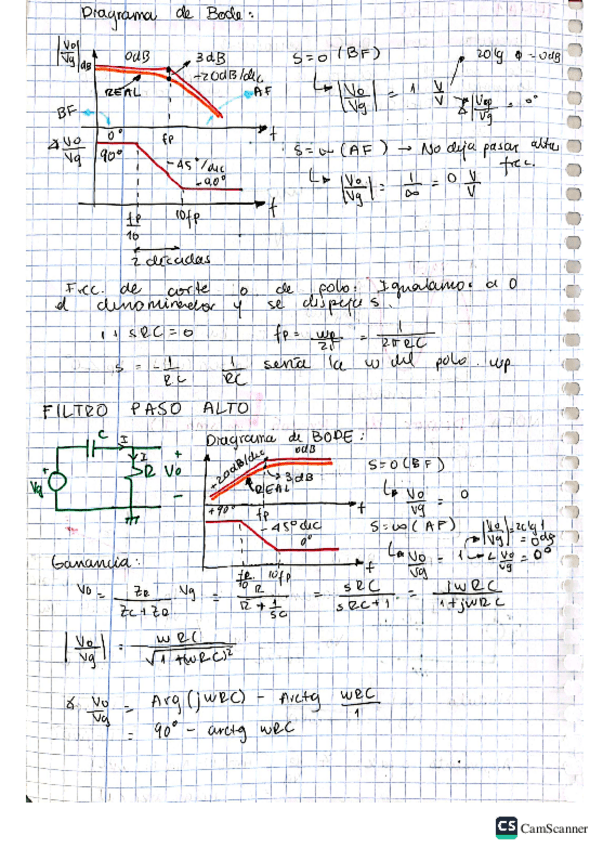 Diagrama de Bode:
|Vo/Vg| dB
0dB
3dB
-20dB/dec
REAL
AF
BF
fp
f
∡ Vo/Vg
0°
90°
-45°/dec
-90°
fp/10
10fp
f
2 décadas
s=0 (BF)
20 lg
0dB
↳ |Vo/Vg| = 1 V/V
= 0°
s=∞ (AF) → No deja pasar altas
frec.
↳ |Vo/Vg| = 1/∞ = 0 V/V
Frec. de corte o de polo: Igualamos a 0
el denominador y se despeja s.
1+sRC=0 fp = wp/2π = 1/2πRC
s = -1/RC 1/RC sería la w del polo wp
FILTRO PASO ALTO
C
I
I
R
Vo
+
-
Vg
+
Diagrama de BODE:
+20dB/dec
0dB
3dB
REAL
fp
f
+90°
-45° dec
0°
fp/10
10fp
f
s=0 (BF)
↳ Vo/Vg = 0
s=∞ (AF)
|Vo/Vg| = 20lg 1
= 0dB
↳ Vo/Vg = 1 → ∡ Vo/Vg = 0°
Ganancia:
Vo = ZR/(ZC+ZR) Vg = R/(R+1/sC) = sRC/(sRC+1) = jwRC/(1+jwRC)
|Vo/Vg| = wRC/√(1+(wRC)²)
∡ Vo/Vg = Arg(jwRC) - Arctg wRC/1
= 90° - arctg wRC
CS CamScanner